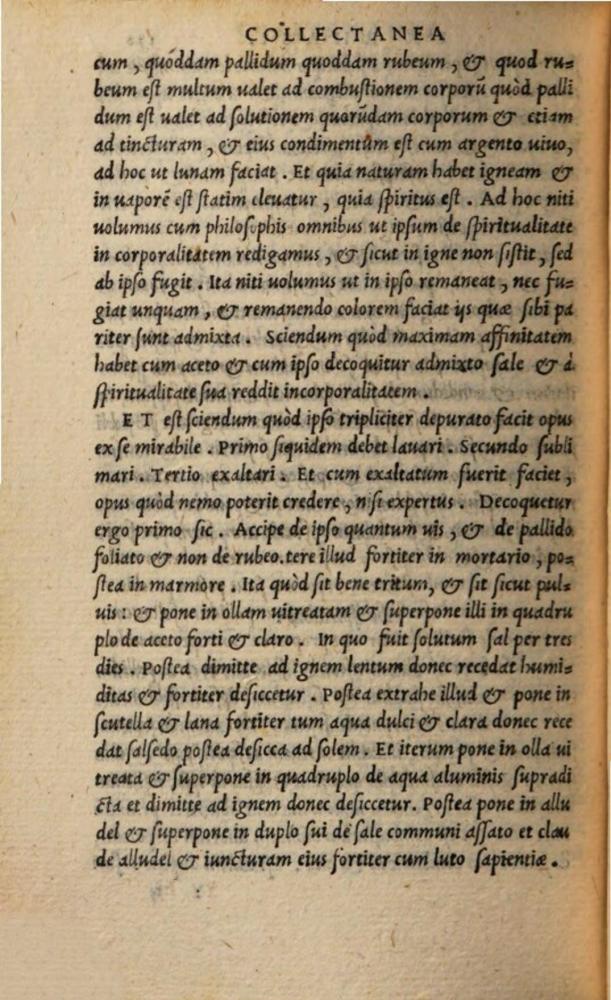 COLLECTANEA
cum, quóddam pallidum quoddam rubeum, & quod ru=
beum est multum ualet ad combustionem corporũ quòd palli
dum est ualet ad solutionem quarũdam corporum & etiam
ad tincturam, & eius condimentum est cum argento uiuo,
ad hoc ut lunam faciat. Et quia naturam habet igneam &
in uaporẽ est statim eleuatur, quia spiritus est. Ad hoc niti
uolumus cum philosophis omnibus ut ipsum de spiritualitate
in corporalitatem redigamus, & sicut in igne non sistit, sed
ab ipso fugit. Ita niti uolumus ut in ipso remaneat, nec fu=
giat unquam, & remanendo colorem faciat ijs quæ sibi pa
riter sunt admixta. Sciendum quòd maximam affinitatem
habet cum aceto & cum ipso decoquitur admixto sale & à
spiritualitate sua reddit incorporalitatem.
ET est sciendum quòd ipso tripliciter depurato facit opus
ex se mirabile. Primo siquidem debet lauari. Secundo subli
mari. Tertio exaltari. Et cum exaltatum fuerit faciet,
opus quòd nemo poterit credere, nisi expertus. Decoquetur
ergo primo sic. Accipe de ipso quantum uis, & de pallido
foliato & non de rubeo.tere illud fortiter in mortario, po=
stea in marmore. Ita quòd sit bene tritum, & sit sicut pul=
uis: & pone in ollam uitreatam & superpone illi in quadru
plo de aceto forti & claro. In quo fuit solutum sal per tres
dies. Postea dimitte ad ignem lentum donec recedat humi=
ditas & fortiter desiccetur. Postea extrahe illud & pone in
scutella & laua fortiter tum aqua dulci & clara donec rece
dat salsedo postea desicca ad solem. Et iterum pone in olla ui
treata & superpone in quadruplo de aqua aluminis supradi
cta et dimitte ad ignem donec desiccetur. Postea pone in allu
del & superpone in duplo sui de sale communi assato et clau
de alludel & iuncturam eius fortiter cum luto sapientiæ.